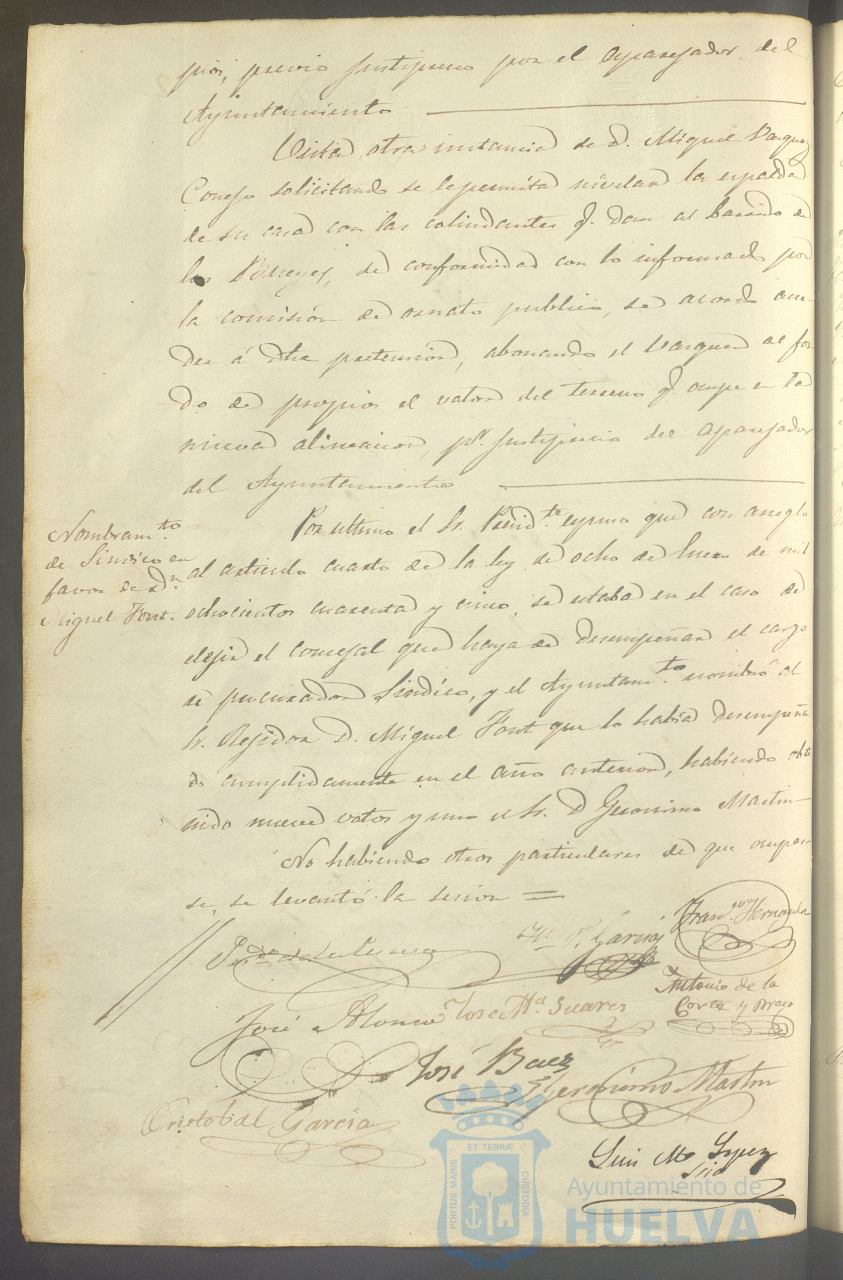 pios, previo justiprecio por el Aparejador del
Ayuntamiento
Vista otra instancia de D. Miguel Vazquez
Conejo solicitando se le permita nivelar la espalda
de su casa con las colindantes q. dan al barrido de
los de conformidad con lo informado por
la comisión de ornato publico, se acordó acce-
der á dha pretension, abonando el Vazquez al fon
do de propios el valor del terreno q. ocupe en la
nueva alineacion, pr. justiprecio del aparejador
del Ayuntamiento
Nombramto.
de Sindico en
favor de Dn.
Miguel Font.
Por ultimo el Sr. Presidte. espuso que con arreglo
al articulo cuarto de la ley de ocho de Enero de mil
ochocientos cuarenta y cinco, se estaba en el caso de
elejir el concejal que haya de desempeñar el cargo
de procurador Sindico, y el Ayuntamto. nombró al
Sr. Rejidor D. Miguel Font que lo habia desempeña
do cumplidamente en el año anterior, habiendo obte
nido nueve votos y uno el Sr. D Geronimo Martin
No habiendo otros particulares de que ocupar-
se, se levantó la sesion =
García
Franco. Hernandez
Antonio de la
Corte y Bravo
José Alonso
Jose Ma. Suares
José Baez
Geronimo Martin
Cristobal García
Luis Ma. Lopez
Srio
PORTUS MARIS
ET TERRÆ
CUSTODIA
Ayuntamiento de
HUELVA